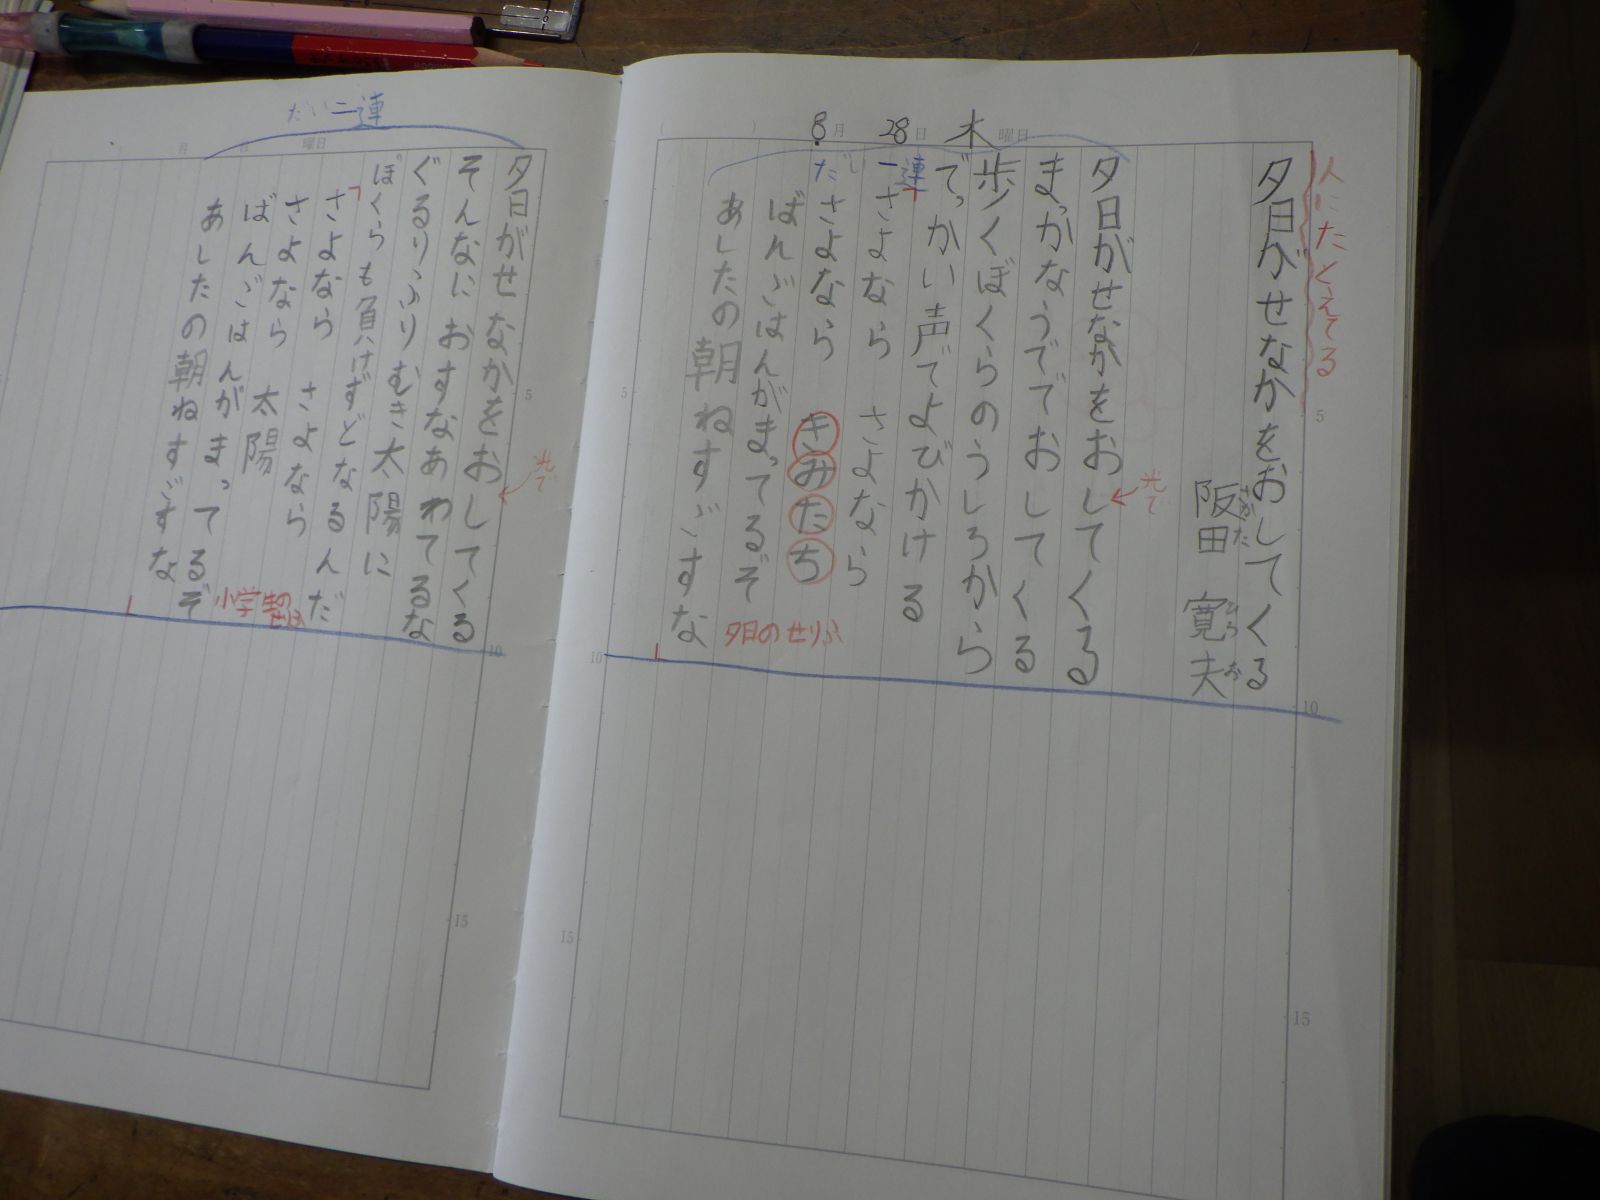 人にたとえてる
夕日がせなかをおしてくる
阪田 寛夫
さかた ひろお
8月28日木曜日
だい一連
夕日がせなかをおしてくる
光で
まっかなうででおしてくる
歩くぼくらのうしろから
でっかい声でよびかける
「さよなら さよなら
さよなら きみたち
ばんごはんがまってるぞ
あしたの朝ねすごすな
夕日のせりふ
だい二連
月 日 曜日
夕日がせなかをおしてくる
光で
そんなにおすなあわてるな
ぐるりふりむき太陽に
ぼくらも負けずどなるんだ
「さよなら さよなら
さよなら 太陽
ばんごはんがまってるぞ
あしたの朝ねすごすな
小学生の
5
10
15
5
10
15
5
10
15